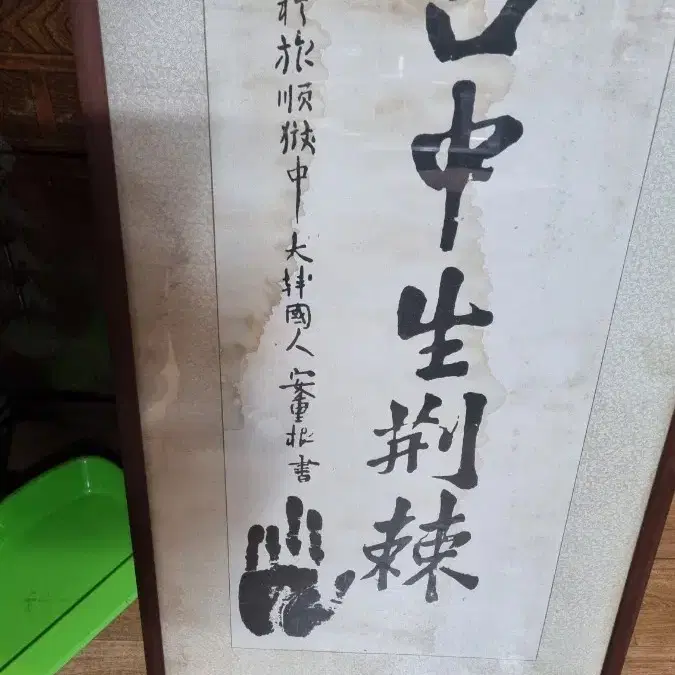 口中生荊棘
於旅順獄中 大韓國人 安重根書